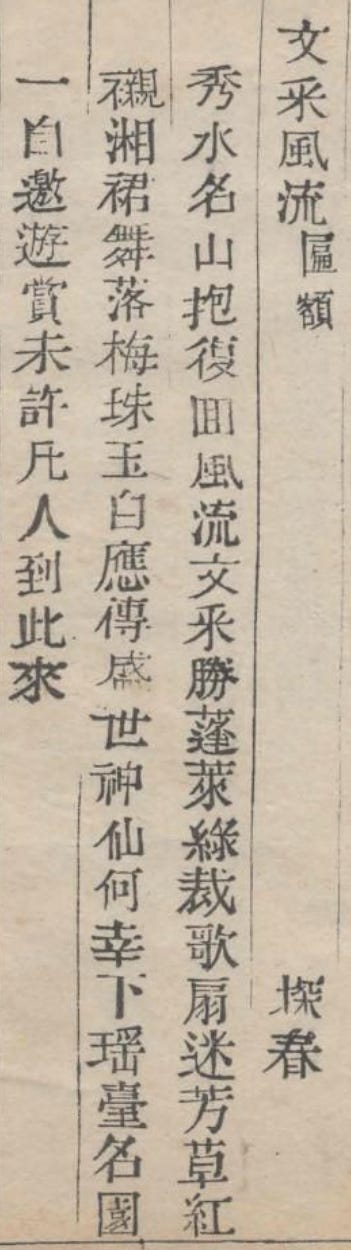 文采風流 匾額 探春
秀水名山抱復囬風流文采勝蓬萊綠裁歌扇迷芳草紅
襯湘裙舞落梅珠玉自應傳盛世神仙何幸下瑶臺名園
一自邀遊賞未許凡人到此來